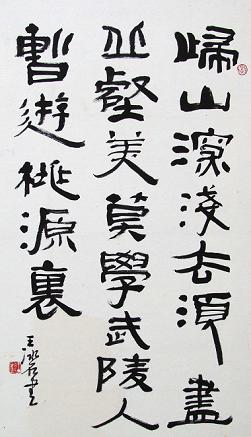 歸山深淺去須盡
丘壑美莫學武陵人
暫遊桃源裏
王 書